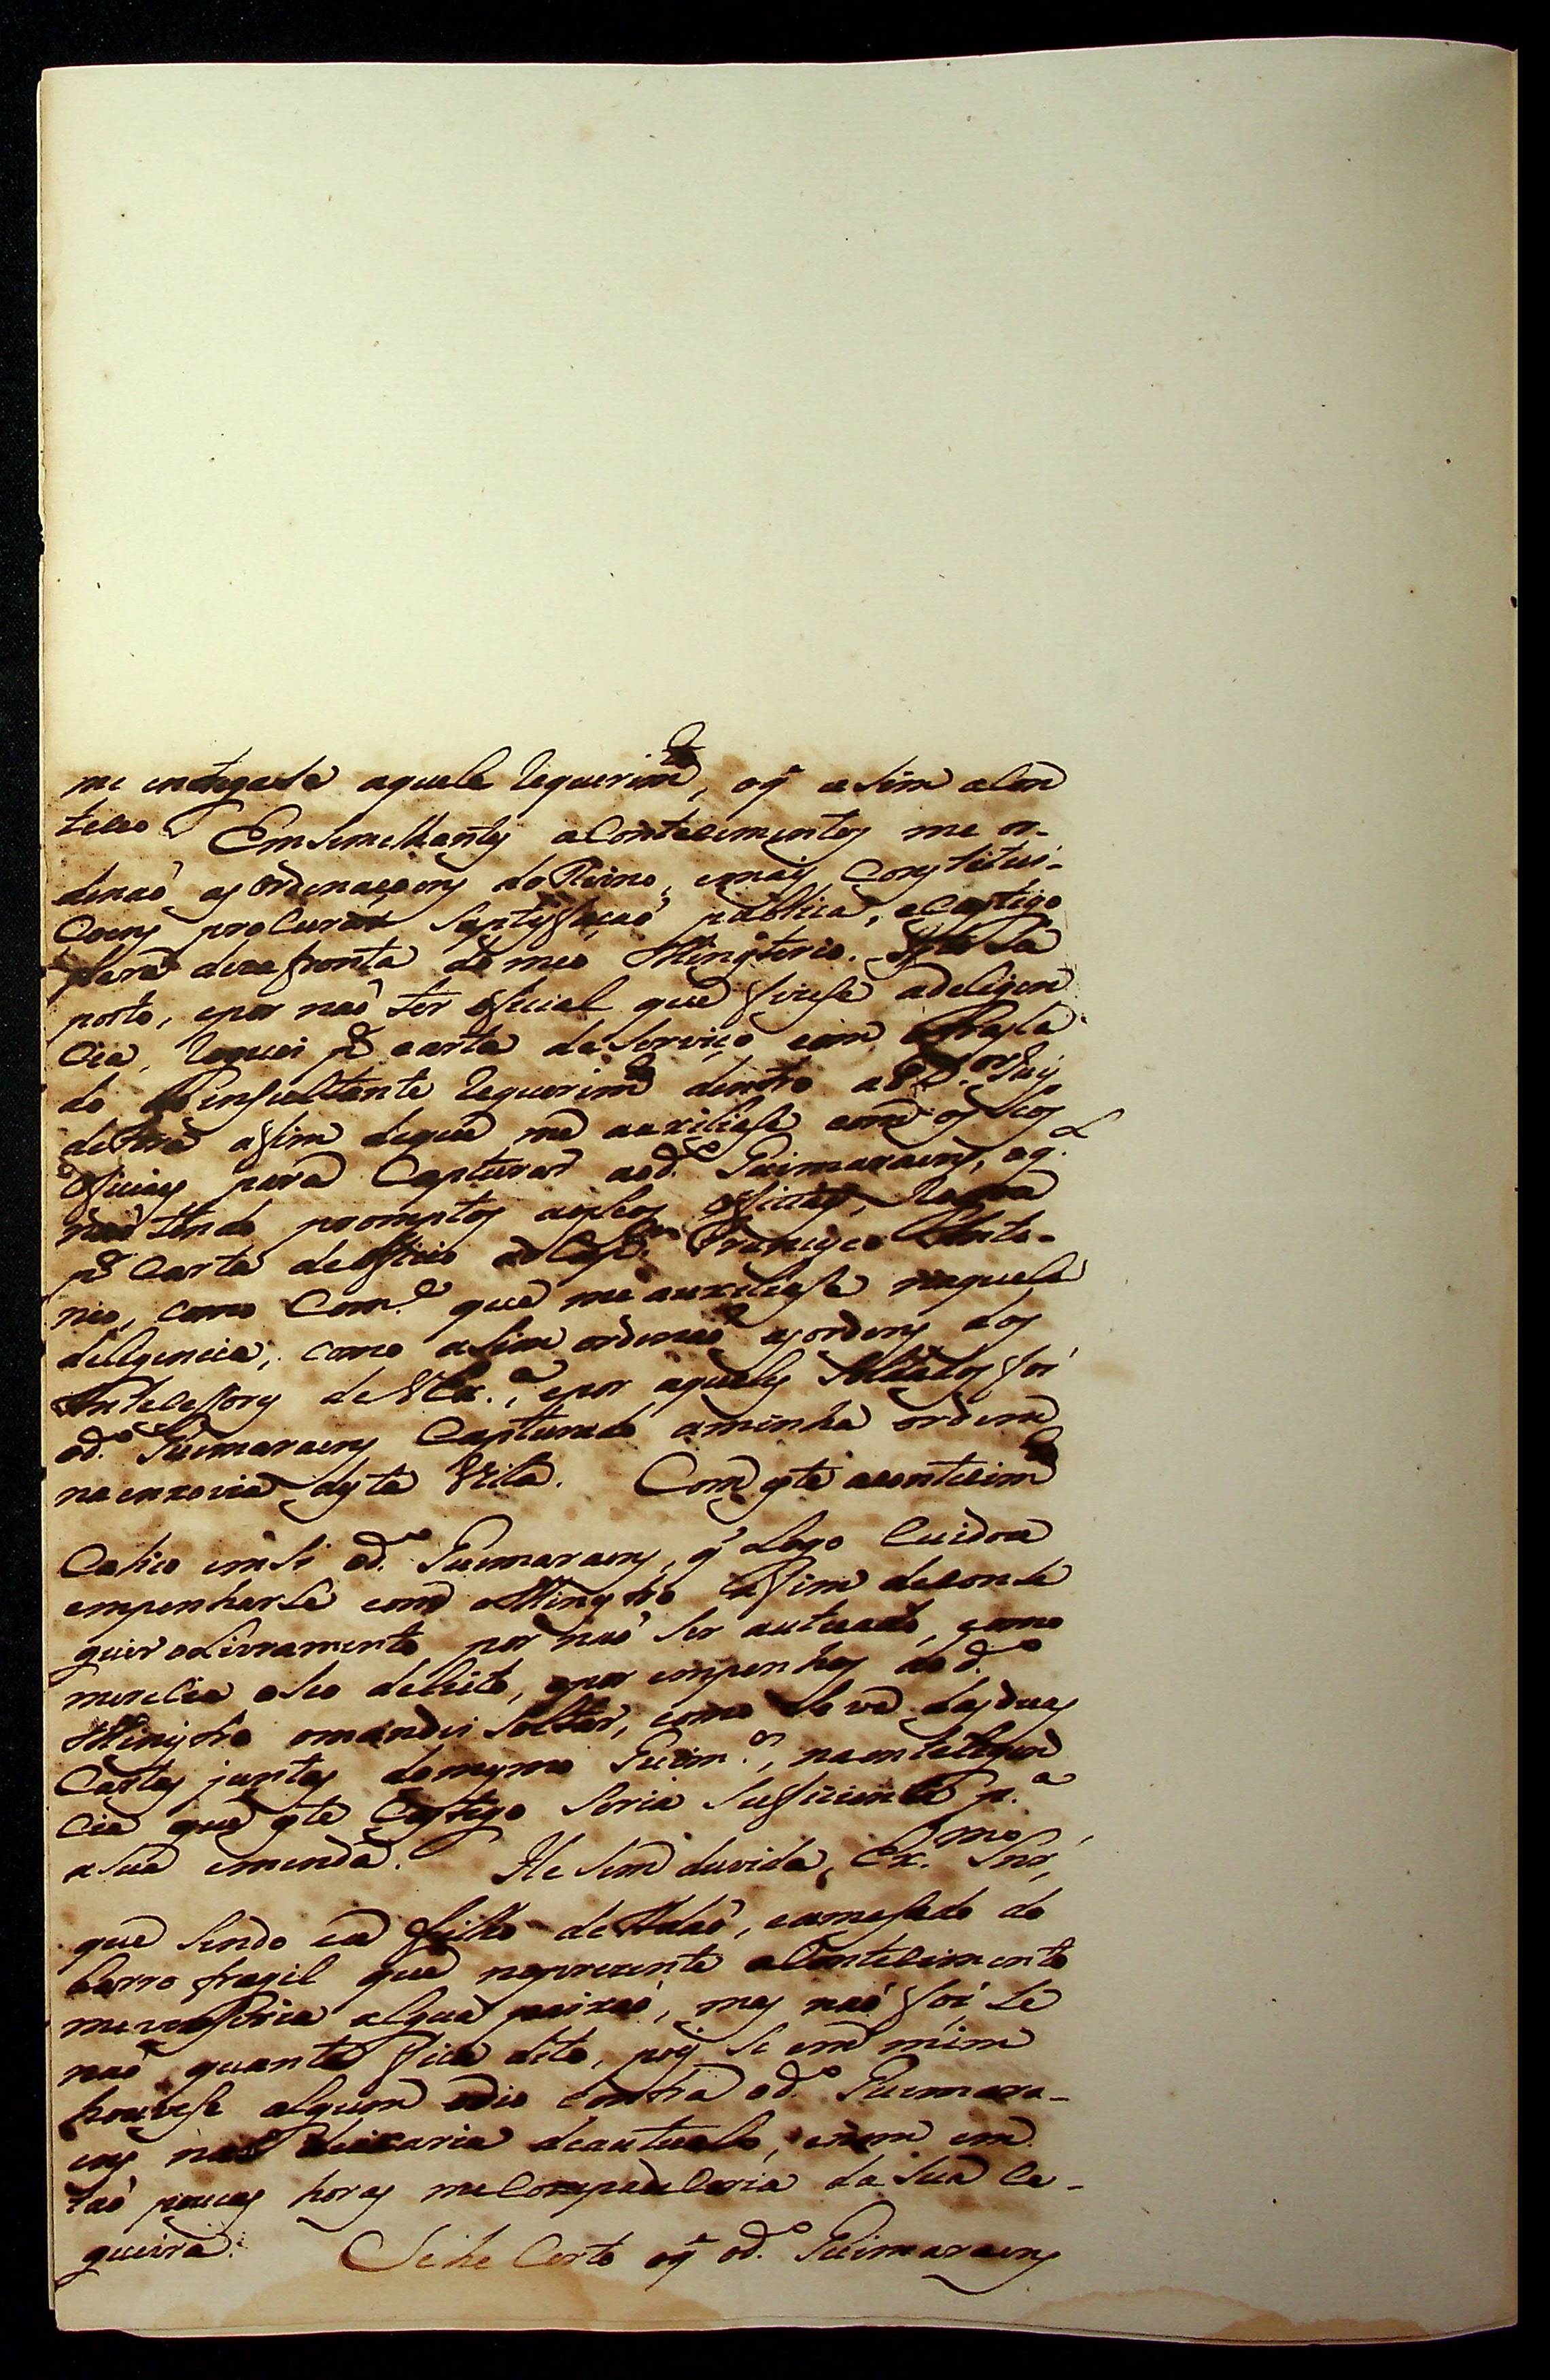 me entregase aquele requerim.to, oq̃ asim acon
teceo. Em semelhantes acontecimentos me or-
denaõ as ordenaçoens do Reino, emais Constitui-
Coens procurar Saptisfaçaõ publica, eCastigo
para dezafronta do meo Ministerio. Isto Su
posto, epor naõ ter oficial que fizese adeligen
cia, roguei p.r carta deServiço com
do insultante requerim.to dentro aoD.or Juis
defora afim deque me auxiliase com os Seos
oficiais para Capturar aod.o Guimaraens, oq.l
naõ tendo promptos aoSeos oficiais, rogou
p.r Carta deofficio aoCap.m Francisco Anto-
nio, como Com.e que me auxiliase naquela
deligencia, como asim ordenaõ asordens dos
Antecesores deVEx.a, epor aqueles Soldados foi
od.o Guimaraens Capturado aminha ordem
naenxovia desta Vila. Com este acontecim.to
Cahio emSi od.o Guimaraens, q̃ Logo Cuidou
empenharSe com oMinistro afim deconse
guir oLivramento por naõ Ser autuado, como
merecia oSeo delicto, epor empenhos dod.o
Ministro omandei Soltar, como Se vê dasduas
Cartas juntas domesmo Guim.es, naentelegen
cia que este Castigo Seria Suficiente p.a
aSua emenda. He Sem duvida, Ex.mo Snr',
que Sendo eu filho deAdaõ, eamasado do
barro fragil que nopresente acontecimento
me algua paixaõ, mas naõ foi Se
naõ quanto fica dito, pois Se em mim
houvese algum odio contra od.o Guimara-
ens naõ deixaria deautualo, enem em
taõ poucas horas meCompadeceria da Sua Ce-
gueira. Se he Certo oq̃ od.o Guimaraens